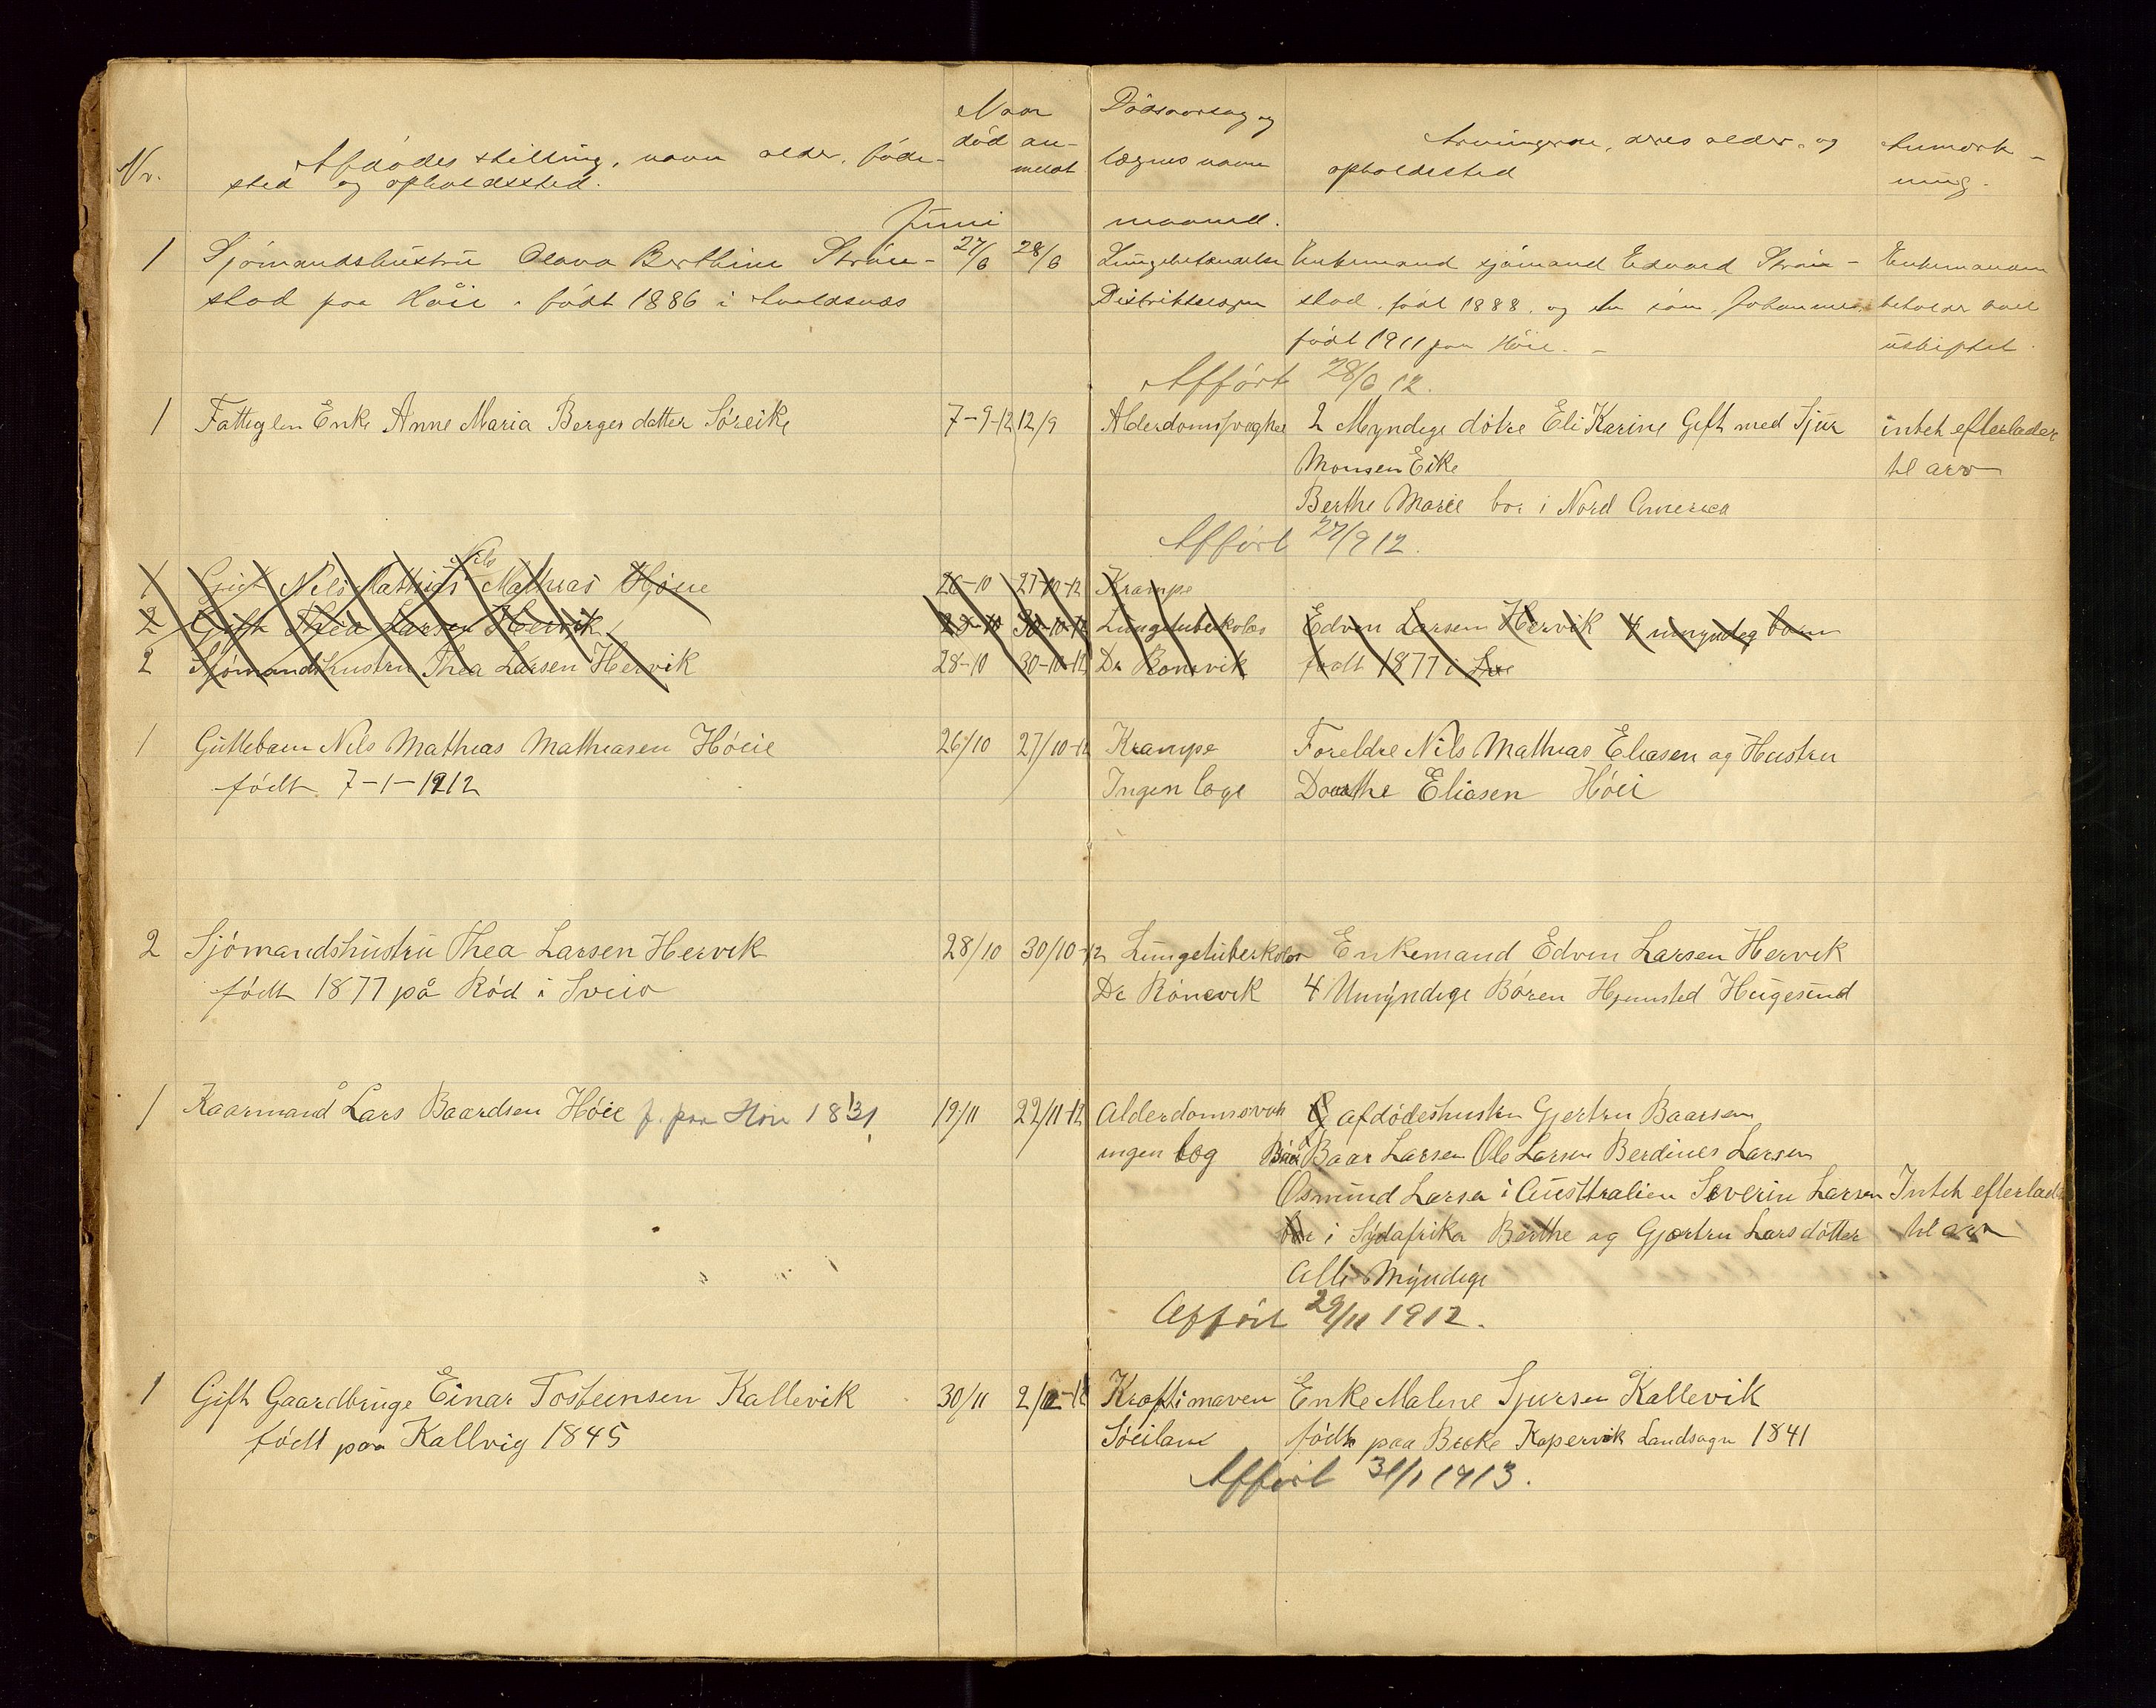 Nr.
Afdødes stilling, navn alder, føde-
sted og opholdssted.
Naar
død
an-
meldt
Dødsaarsag og
lægens navn
Arvingerne, deres alder, og
opholdssted
Anmærk-
ning.
Juni maaned.
1 Sjømandshustru Olava Berthine Strau- 27/6 28/6 Lungebetændelse Enkemand sjømand Edvard Strau- Enkemanden
stad paa Høie. født 1886 i Avaldsnæs Distriktslægen stad. født 1888. og en søn. Johannes. beholder boet
født 1911 paa Høie. – uskiftet.
Afført 28/6 12.
1 Fattiglem Enke Anne Maria Berges datter Søreike 7-9-12 12/9 Alderdomssvaghe 2 Myndige døtre Eli Karine Gift med Sjur intet efterlader
Monsen Eike til arv
Berthe Marie bor i Nord Amerika
Afført 27/9 12.
Nils
1 Gift Nils Mathias Mathias Hjøue 26-10 27-10-12 Krampe
2 Gift Thea Larsen Hervik 28-10 30-10-12 Lungetuberkolos Edvin Larsen Hervik 4 umyndeg barn
2 Sjømandshustru Thea Larsen Hervik 28-10 30-10-12 Dr Rønevik født 1877 i
1 Guttebarn Nils Mathias Mathiasen Høeie 26/10 27/10-12 Krampe Foreldre Nils Mathias Eliasen og Hustru
født 7-1-1912 Ingen læge Dorthe Eliasen Høei
2 Sjömandshustru Thea Larsen Hervik 28/10 30/10-12 Lungetuberkolos Enkemand Edvin Larsen Hervik
født 1877 på Rød i Sveio Dr Rönevik 4 Umyndige Børen Hjemsted Hugesund
1 Kaarmand Lars Baardsen Høie f. paa Høie 1831 19/11 22/11-12 Alderdomsvak afdødeshustru Gjertru Baarsen
ingen læg Baar Larsen Ole Larsen Berdines Larsen
Osmund Larsen i Austtralien Severin Larsen Intet efterlade
bor i Sydafrika Berthe og Gjertru Larsdøtter til arv
Alle Myndige
Afført 29/11 1912.
1 Gift Gaardbruge Einar Tosteensen Kallevik 30/11 2/12-12 Kræft i maven Enke Malene Sjursen Kallevik
født paa Kallvig 1845 Søiland født paa Brekke Kopervik Landsogn 1841
Afført 31/1 1913.